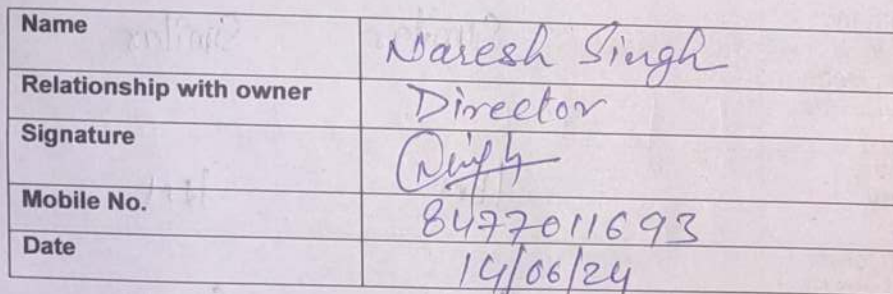 Name Naresh Singh
Relationship with owner Director
Signature
Mobile No. 8477011693
Date 14/06/24